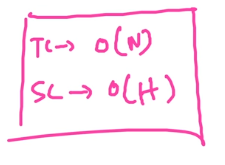 TC → O(N)
SC → O(H)